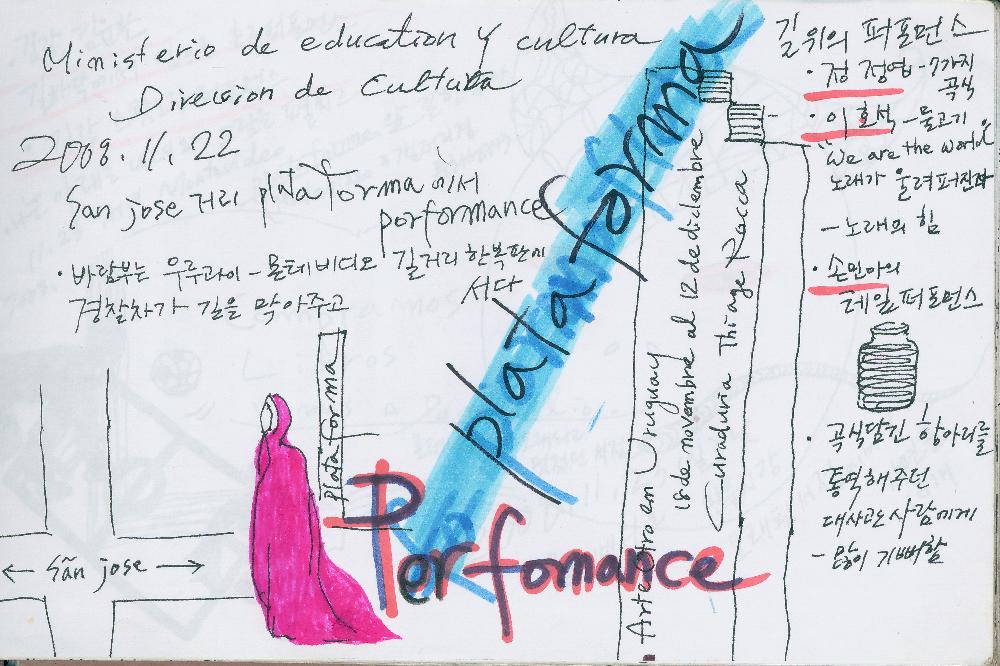 Ministerio de education y cultura
Direccion de Cultura
2008. 11. 22
San jose 거리 plataforma 에서
porformance
· 바람부는 우루과이 - 몬테비디오 길거리 한복판에
서다
경찰차가 길을 막아주고
plataforma
Porfomance
plataforma
← San jose →
Arte otro en Uruguay
18 de novembre al 12 de diciembre
Curaduria Thiago Rocca
길위의 퍼포먼스
· 정정엽 - 7가지
곡식
· 이호석 - 물고기
"We are the world"
노래가 울려퍼진다
- 노래의 힘
· 손민아의
레일 퍼포먼스
· 곡식담긴 항아리들
통역해주던
대사관 사람에게
- 많이 기뻐함